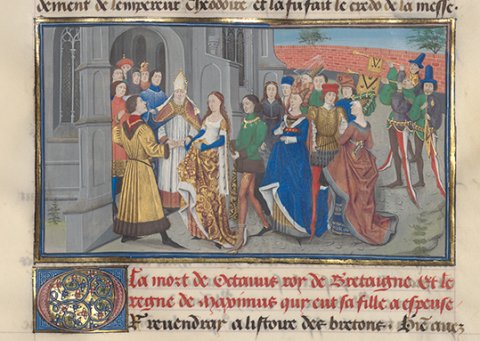 dement de lempereur theodore et la fu fait le credo de la messe.
La mort de Octauius roy de Bretaigne. Et le
regne de Maximus qui eut sa fille a espeuse
Je reuendray a listoire des bretons. Bien auez